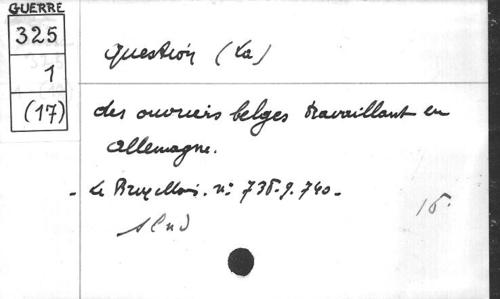 GUERRE
325
1
(17)
Question (La)
des ouvriers belges travaillant en
allemagne.
- Le Bruxellois. n° 738.9.740-
16.